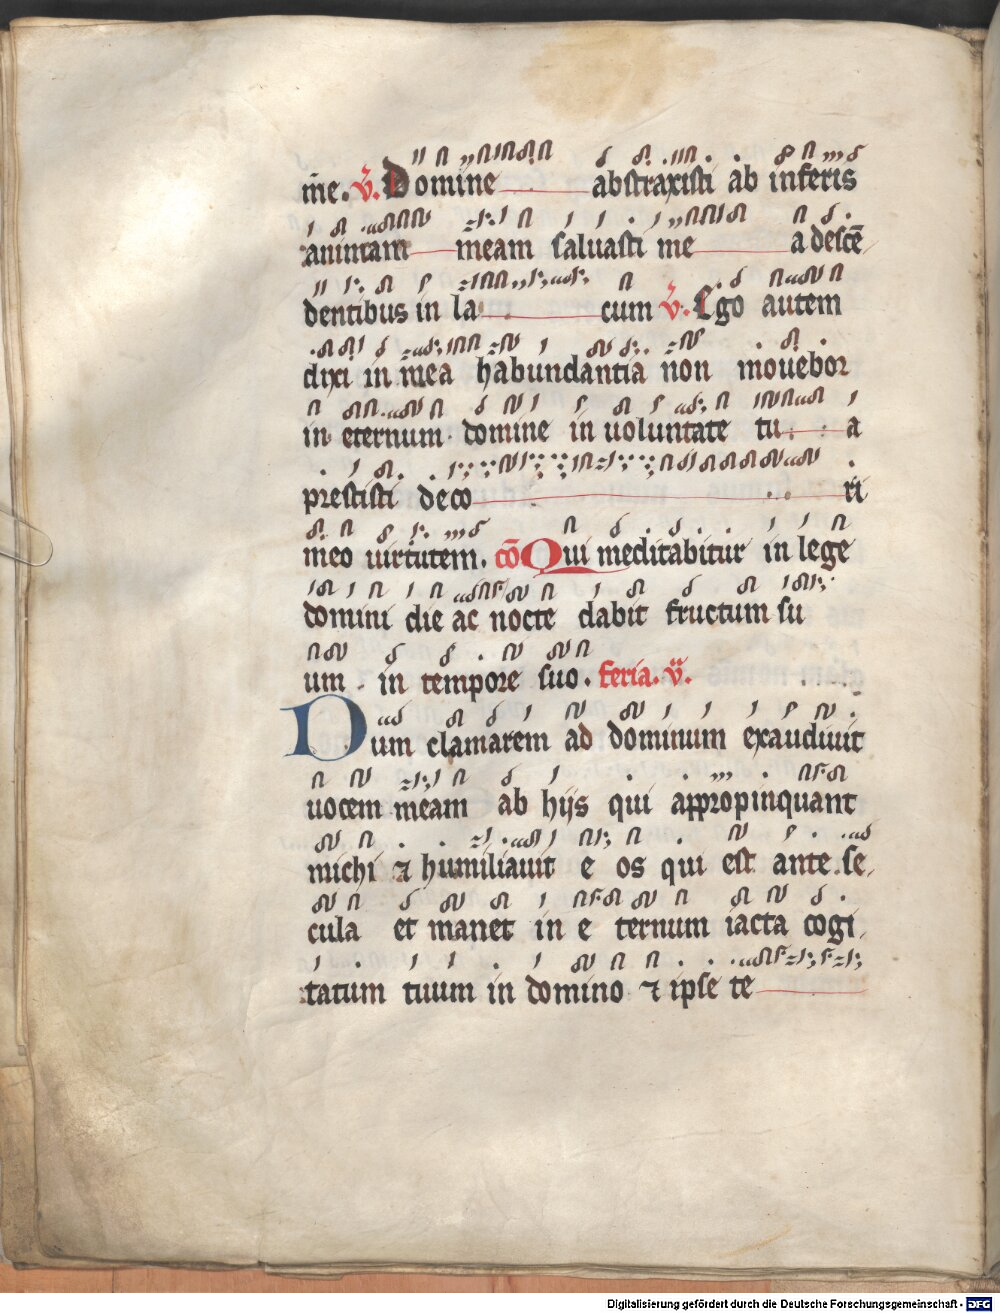 m̄e. v̄. Domine abstraxisti ab inferis
animam meam saluasti me a descē
dentibus in la cum v̄. Ego autem
dixi in mea habundantia non mouebor
in eternum domine in uoluntate tu a
prestitisti deco ri
meo uirtutem. cō Qui meditabitur in lege
domini die ac nocte dabit fructum su
um in tempore suo. feria. v̄.
Dum clamarem ad dominum exaudiuit
uocem meam ab hijs qui appropinquant
michi ⁊ humiliauit e os qui est ante se
cula et manet in e ternum iacta cogi
tatum tuum in domino ⁊ ipse te
Digitalisierung gefördert durch die Deutsche Forschungsgemeinschaft - DFG